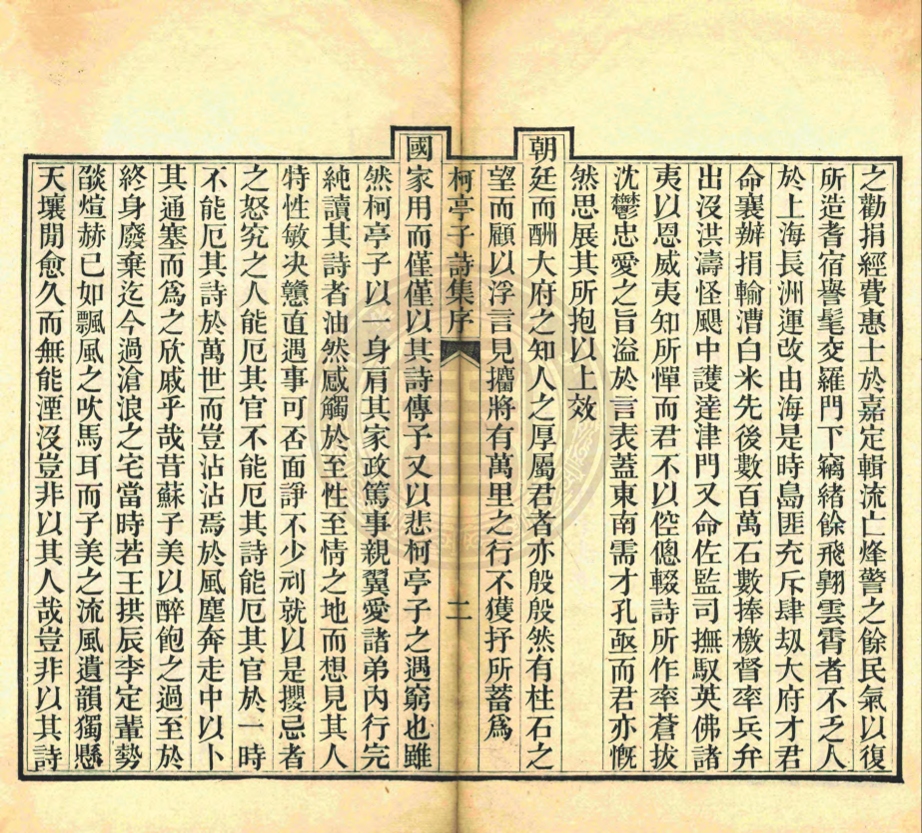 之勸捐經費惠士於嘉定輯流亡烽警之餘民氣以復
所造耆宿譽髦交羅門下竊緒餘飛翺雲霄者不乏人
於上海長洲運改由海是時島匪充斥肆刼大府才君
命襄辦捐輸漕白米先後數百萬石數捧檄督率兵弁
出沒洪濤怪颶中護達津門又命佐監司撫馭英佛諸
夷以恩威夷知所憚而君不以倥傯輟詩所作率蒼拔
沈鬱忠愛之旨溢於言表蓋東南需才孔亟而君亦慨
然思展其所抱以上效
朝廷而酬大府之知人之厚屬君者亦殷殷然有柱石之
望而顧以浮言見攟將有萬里之行不獲抒所蓄爲
柯亭子詩集序 二
國家用而僅僅以其詩傳予又以悲柯亭子之遇窮也雖
然柯亭子以一身肩其家政篤事親翼愛諸弟內行完
純讀其詩者油然感觸於至性至情之地而想見其人
特性敏决戇直遇事可否面諍不少刓就以是攖忌者
之怒究之人能厄其官不能厄其詩能厄其官於一時
不能厄其詩於萬世而豈沾沾焉於風塵奔走中以卜
其通塞而爲之欣戚乎哉昔蘇子美以醉飽之過至於
終身廢棄迄今過滄浪之宅當時若王拱辰李定輩勢
燄煊赫已如飄風之吹馬耳而子美之流風遺韻獨懸
天壤閒愈久而無能湮沒豈非以其人哉豈非以其詩